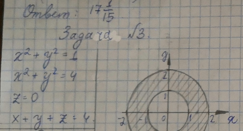 Ответ: 17 1/15
Задача №3.
x² + y² = 1
x² + y² = 4
z = 0
x + y + z = 4
y
2
1
-2 -1 0 1 2 x